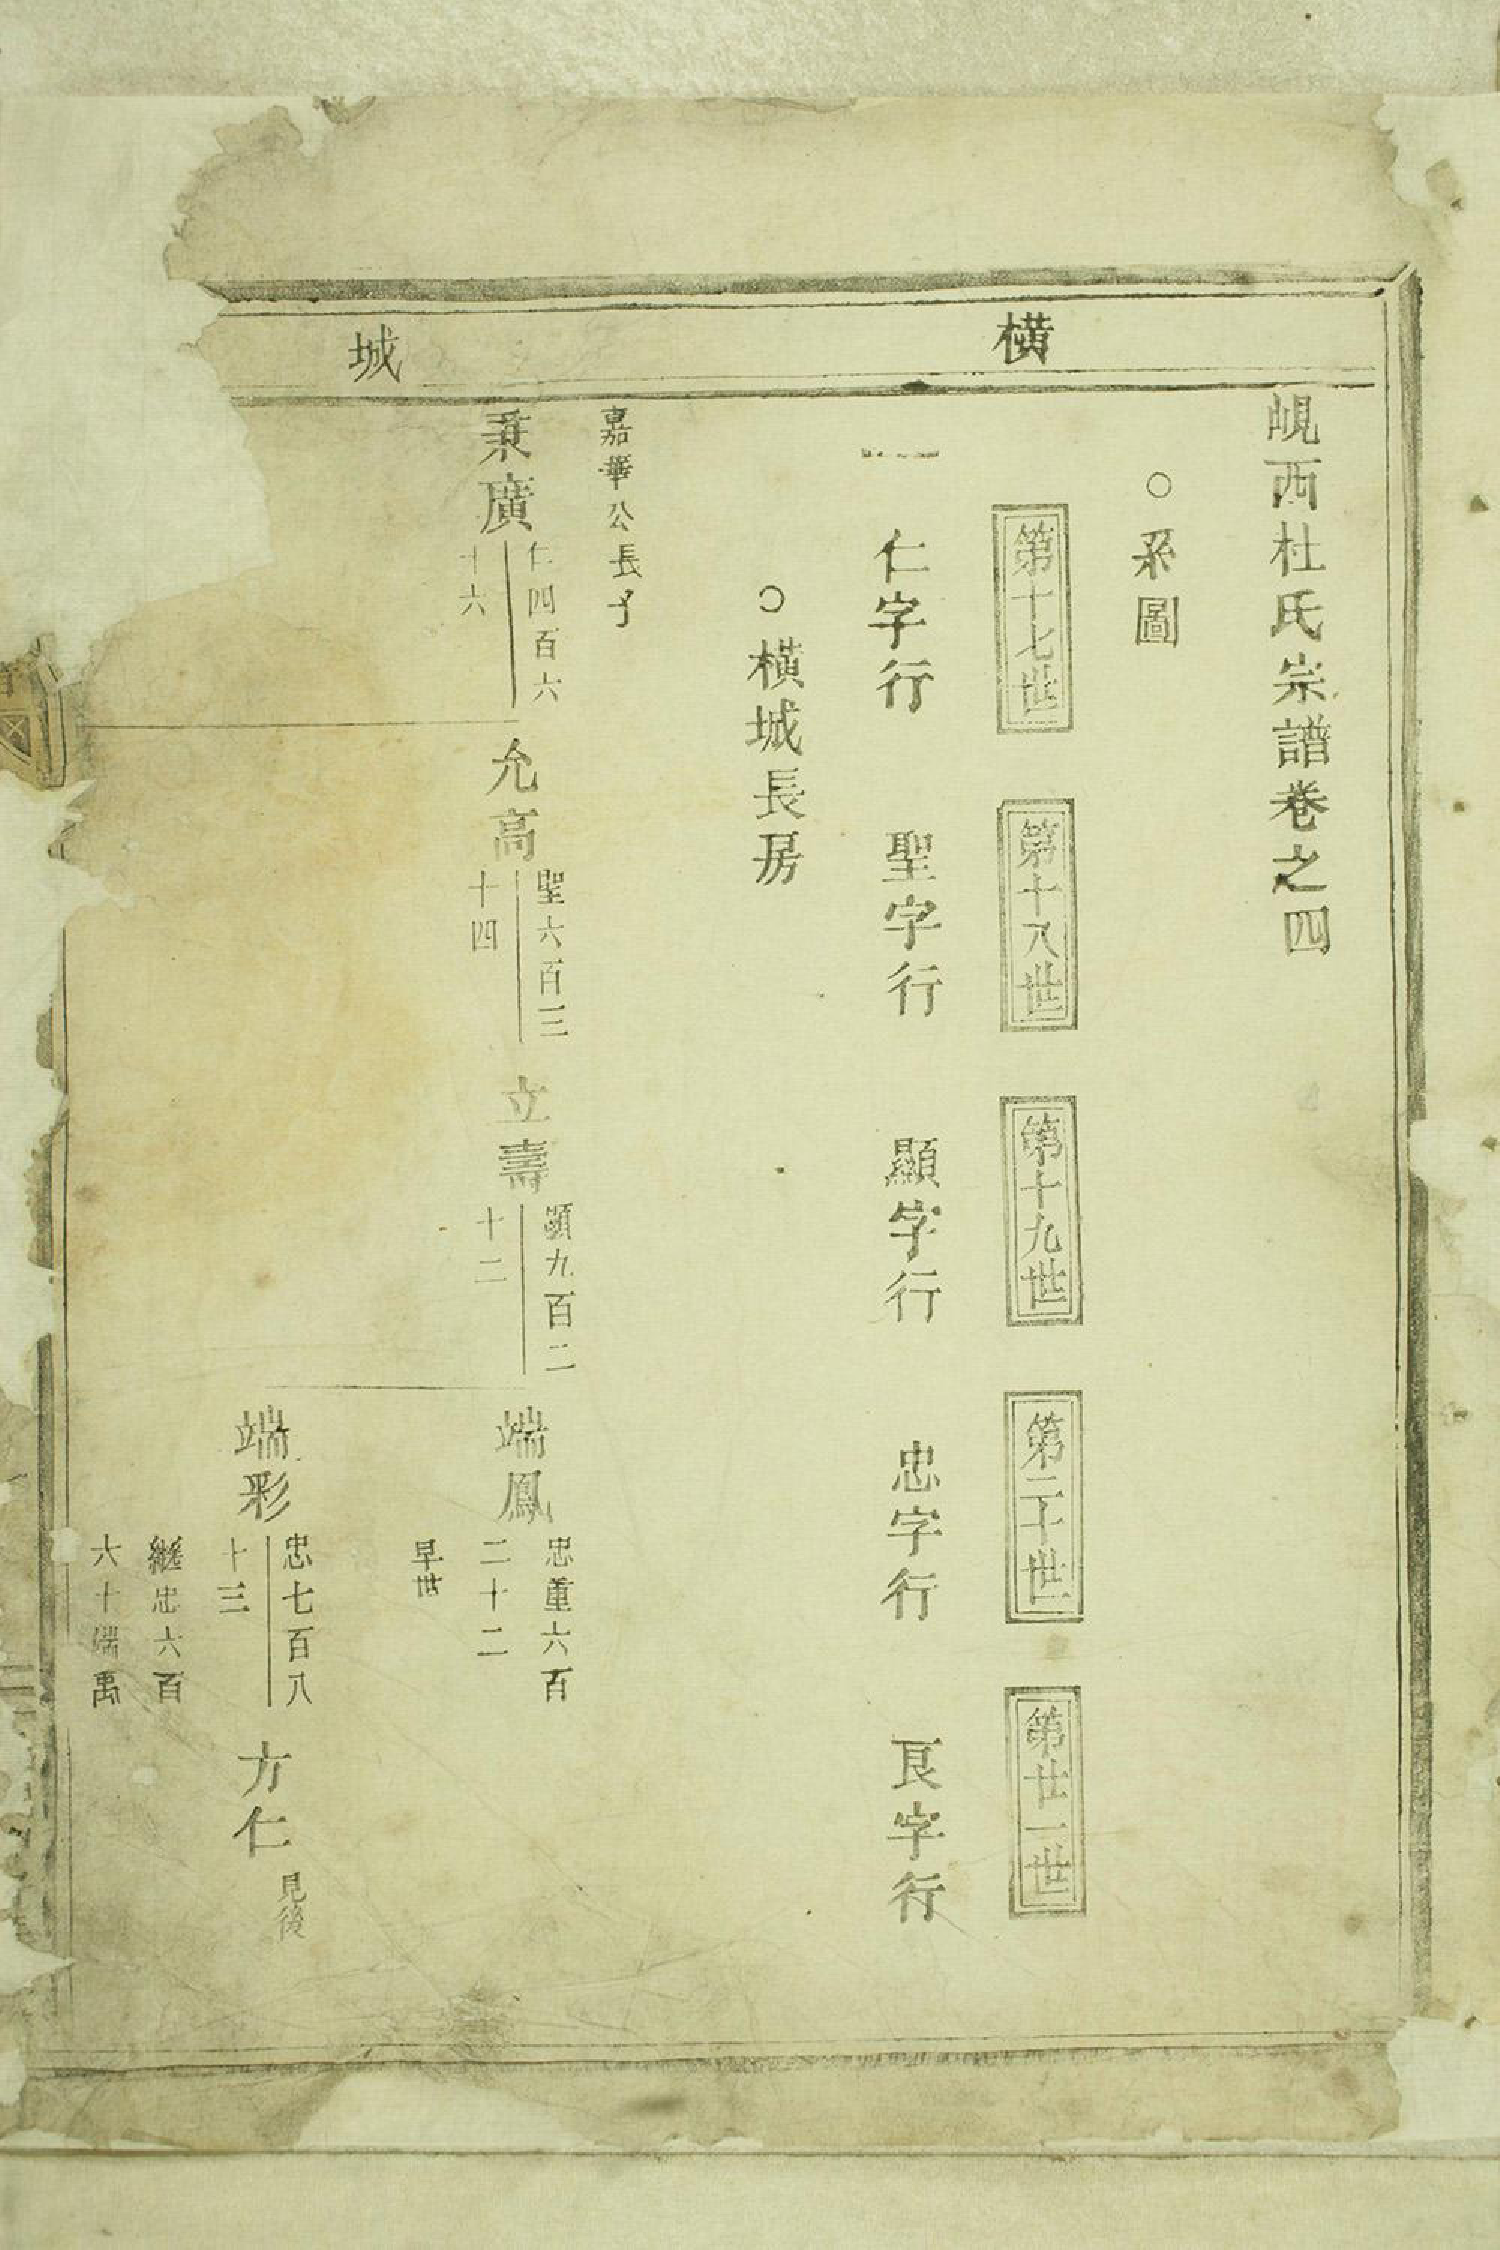 橫
城
峴西杜氏宗譜卷之四
○系圖
第十七世
第十八世
第十九世
第二十世
第廿一世
仁字行
聖字行
顯字行
忠字行
良字行
○橫城長房
嘉華公長子
秉廣
仁四百六
十六
允高
聖六百三
十四
立壽
顯九百二
十二
端鳳
忠重六百
二十二
早世
端彩
忠七百八
十三
繼忠六百
六十端禹
方仁
見後